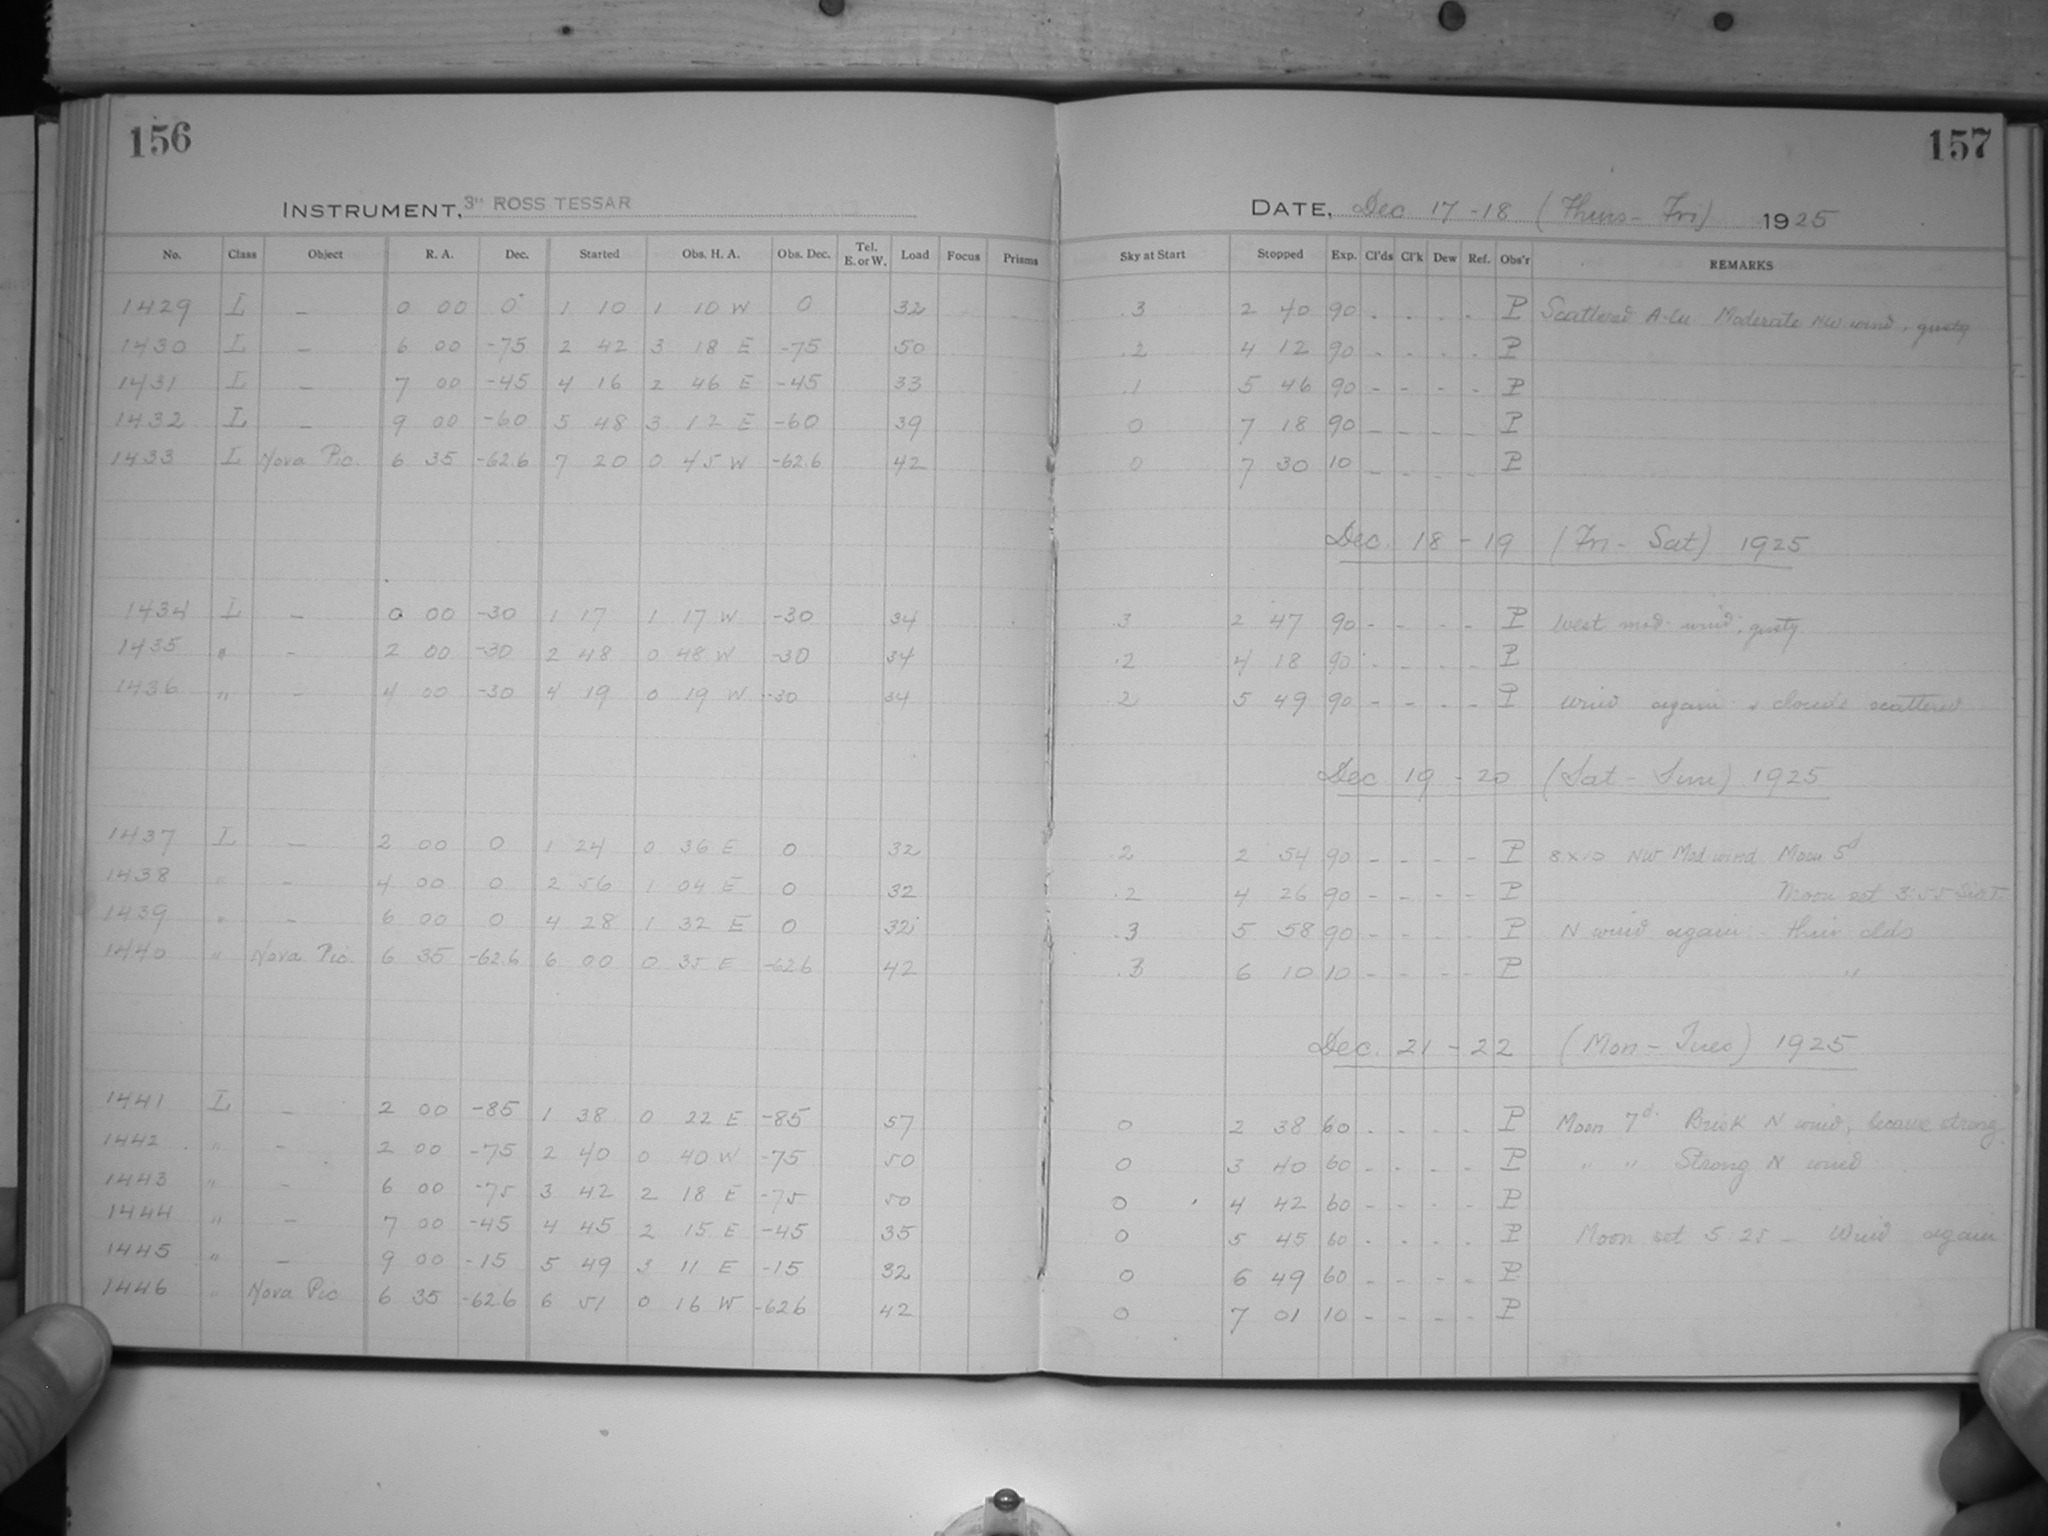 156
157
INSTRUMENT, 3" ROSS TESSAR
DATE, Dec 17-18 (Thurs-Fri) 1925
No. Class Object R. A. Dec. Started Obs. H. A. Obs. Dec. Tel. E. or W. Load Focus Prisms Sky at Start Stopped Exp. Cl'ds Cl'k Dew Ref. Obs'r REMARKS
1429 L - 0 00 0° 1 10 1 10 W 0 32 .3 2 40 90 - - - - P Scattered A-Cu Moderate NW wind, gusty
1430 L - 6 00 -75 2 42 3 18 E -75 50 .2 4 12 90 - - - - P
1431 L - 7 00 -45 4 16 2 46 E -45 33 .1 5 46 90 - - - - P
1432 L - 9 00 -60 5 48 3 12 E -60 39 0 7 18 90 - - - - P
1433 L Nova Pic. 6 35 -62.6 7 20 0 45 W -62.6 42 0 7 30 10 - - - - P
Dec. 18-19 (Fri-Sat) 1925
1434 L - 0 00 -30 1 17 1 17 W -30 34 .3 2 47 90 - - - - P West mod. wind, gusty
1435 " - 2 00 -30 2 48 0 48 W -30 34 .2 4 18 90 - - - - P
1436 " - 4 00 -30 4 19 0 19 W -30 34 .2 5 49 90 - - - - P Wind again & clouds scattered
Dec 19-20 (Sat-Sun) 1925
1437 L - 2 00 0 1 24 0 36 E 0 32 .2 2 54 90 - - - - P 8x10 NW Mod wind Moon 5d
1438 " - 4 00 0 2 56 1 04 E 0 32 .2 4 26 90 - - - - P Moon set 3:55 Sid T.
1439 " - 6 00 0 4 28 1 32 E 0 32 .3 5 58 90 - - - - P N wind again - thin clds
1440 " Nova Pic. 6 35 -62.6 6 00 0 35 E -62.6 42 .3 6 10 10 - - - - P "
Dec. 21-22 (Mon-Tues) 1925
1441 L - 2 00 -85 1 38 0 22 E -85 57 0 2 38 60 - - - - P Moon 7d. Brisk N wind, became strong
1442 " - 2 00 -75 2 40 0 40 W -75 50 0 3 40 60 - - - - P " " Strong N wind
1443 " - 6 00 -75 3 42 2 18 E -75 50 0 4 42 60 - - - - P
1444 " - 7 00 -45 4 45 2 15 E -45 35 0 5 45 60 - - - - P Moon set 5 25 - Wind again
1445 " - 9 00 -15 5 49 3 11 E -15 32 0 6 49 60 - - - - P
1446 " Nova Pic 6 35 -62.6 6 51 0 16 W -62.6 42 0 7 01 10 - - - - P